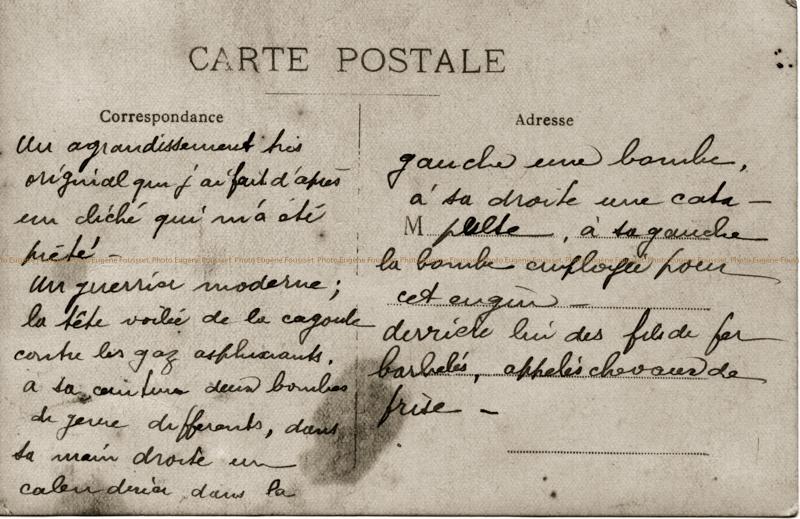 CARTE POSTALE
Correspondance
Un agrandissement très
original que j'ai fait d'après
un cliché qui m'a été
prêté –
Un guerrier moderne ;
la tête voilée de la cagoule
contre les gaz asphyxiants.
a sa ceinture deux bombes
de genre differents, dans
sa main droite un
calendrier dans la
Adresse
gauche une bombe,
à sa droite une cata –
M pulte, à sa gauche
la bombe employée pour
cet engin –
derrière lui des fils de fer
barbelés, appelés chevaux de
frise –
Photo Eugène Fousset. Photo Eugène Fousset. Photo Eugène Fousset. Photo Eugène Fousset. Photo Eugène Fousset. Photo Eugène Fousset.